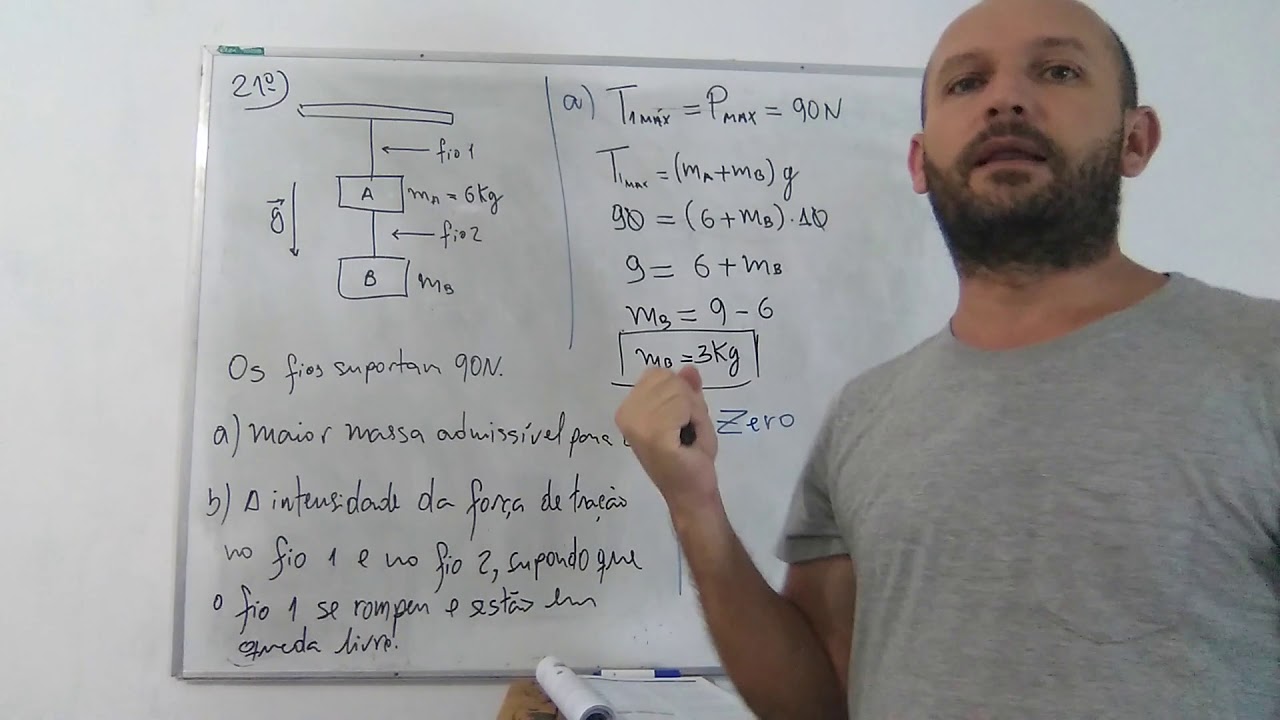 21º)
fio 1
A
mA = 6Kg
g
fio 2
B
mB
Os fios suportam 90N.
a) Maior massa admissível para
b) A intensidade da força de tração
no fio 1 e no fio 2, supondo que
o fio 1 se rompeu e estão em
queda livre.
a) T1MÁX = PMAX = 90N
T1MAX = (mA + mB) g
90 = (6 + mB) . 10
9 = 6 + mB
mB = 9 - 6
mB = 3Kg
Zero